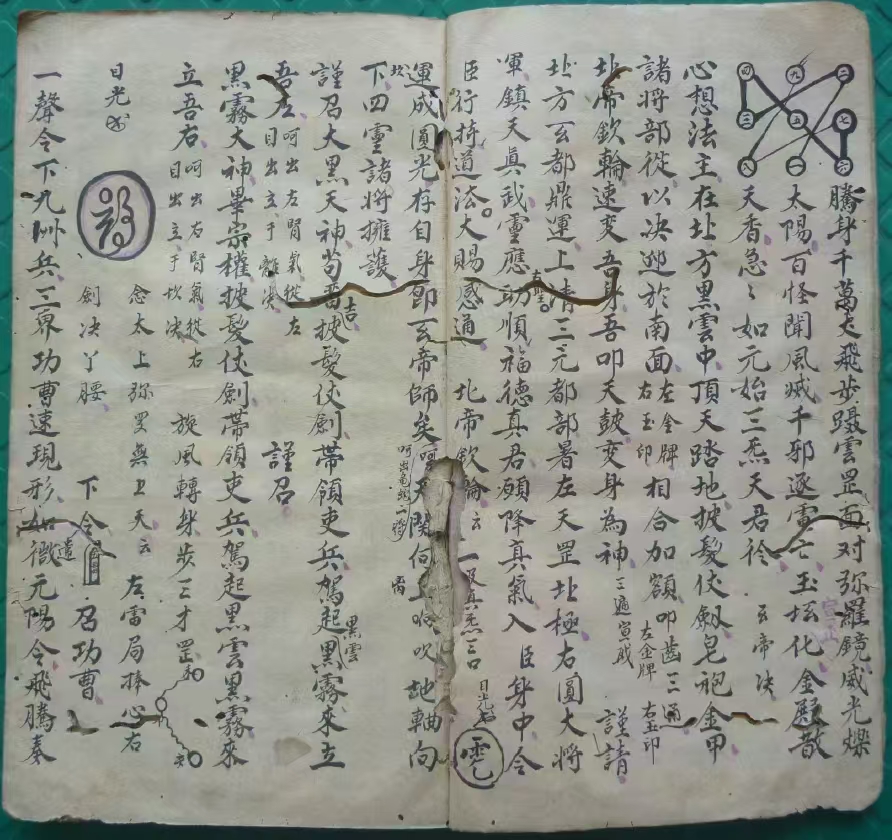 四 九 二
三 五 七
八 一 六
騰身千萬丈飛步躡雲罡面对弥羅鏡威光燦
太陽百怪聞風滅千邪逐雷亡玉坛化金殿散
天香急〻如元始三炁天君祫 玄帝决
心想法主在北方黑雲中頂天踏地披髮仗劔皂袍金甲
諸將部從以决迎於南面左金牌右玉印相合加額叩齒三通左金牌右玉印
北帝欽輪速变吾身吾叩天鼓变身為神三遍宣戒 謹請
北方玄都鼎運上清三元都部署左天罡北極右圓大將
軍鎮天真武靈應助順福德真君願降真氣入臣身中令
臣行持道法大賜感通 北帝欽輪云 一吸真炁三口 日光
運成圓光存自身即玄帝師矣 呵出龟蛇二將 吹地軸向
坎下四靈諸將擁護
謹召大黑天神苟吉畱披髮仗劍帶領吏兵駕起黑雲黑霧來立
吾左呵出左腎氣從左目出立于離决 謹召
黑霧大神畢宗權披髮仗劍帶領吏兵駕起黑雲黑霧來
立吾右呵出右腎氣從右目出立于坎决 旋風轉身步三才罡
日光 念太上弥罗無上天云 左雷局捧心右
劍决丫腰 下令 召功曹
一聲令下九洲兵三界功曹速現形 遣 徵元陽令飛騰奏